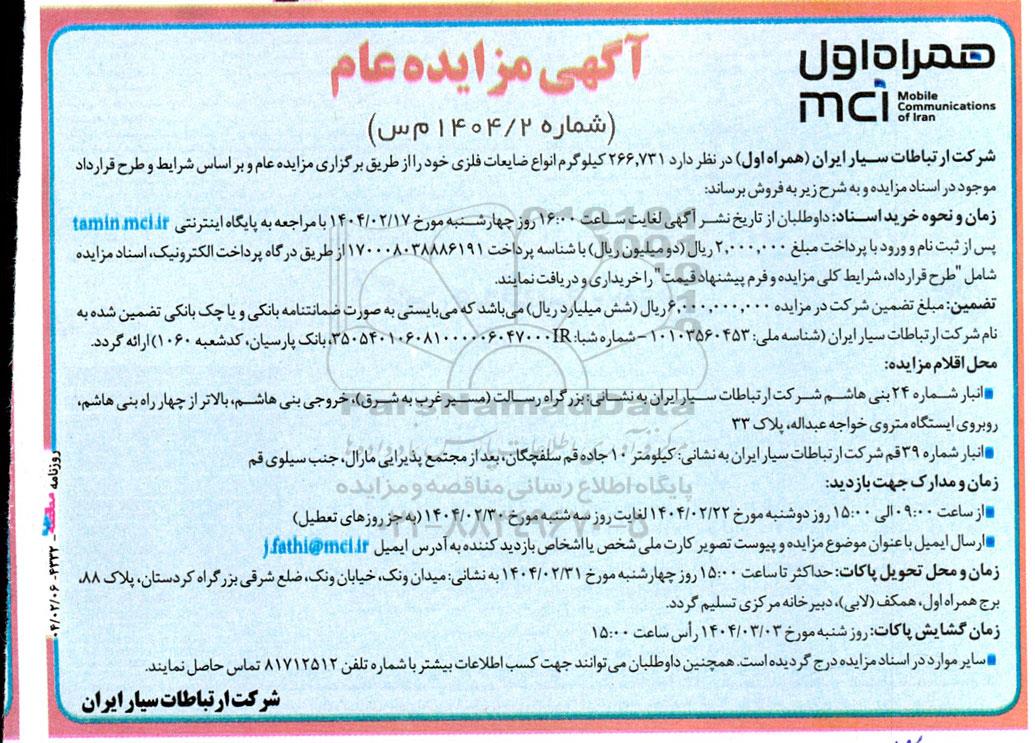 همراه اول
mci Mobile Communications of Iran
آگهی مزایده عام
(شماره ۱۴۰۴/۲ م س)
شرکت ارتباطات سیار ایران (همراه اول) در نظر دارد ۲۶۶,۷۳۱ کیلوگرم انواع ضایعات فلزی خود را از طریق برگزاری مزایده عام و بر اساس شرایط و طرح قرارداد
موجود در اسناد مزایده و به شرح زیر به فروش برساند:
زمان و نحوه خرید اسناد: داوطلبان از تاریخ نشر آگهی لغایت ساعت ۱۶:۰۰ روز چهارشنبه مورخ ۱۴۰۴/۰۲/۱۷ با مراجعه به پایگاه اینترنتی tamin.mci.ir
پس از ثبت نام و ورود با پرداخت مبلغ ۲,۰۰۰,۰۰۰ ریال (دو میلیون ریال) با شناسه پرداخت ۱۷۰۰۰۸۰۳۸۸۸۶۱۹۱ از طریق درگاه پرداخت الکترونیک، اسناد مزایده
شامل "طرح قرارداد، شرایط کلی مزایده و فرم پیشنهاد قیمت" را خریداری و دریافت نمایند.
تضمین: مبلغ تضمین شرکت در مزایده ۶,۰۰۰,۰۰۰,۰۰۰ ریال (شش میلیارد ریال) می‌باشد که می‌بایستی به صورت ضمانتنامه بانکی و یا چک بانکی تضمین شده به
نام شرکت ارتباطات سیار ایران (شناسه ملی: ۱۰۱۰۳۵۶۰۴۵۳ - شماره شبا: IR۳۵۰۵۴۰۱۰۶۰۸۱۰۰۰۰۰۶۰۴۷۰۰۰، بانک پارسیان، کد شعبه ۱۰۶۰) ارائه گردد.
محل اقلام مزایده:
■ انبار شماره ۲۴ بنی هاشم شرکت ارتباطات سیار ایران به نشانی: بزرگراه رسالت (مسیر غرب به شرق)، خروجی بنی هاشم، بالاتر از چهار راه بنی هاشم،
روبروی ایستگاه متروی خواجه عبداله، پلاک ۳۳
■ انبار شماره ۳۹ قم شرکت ارتباطات سیار ایران به نشانی: کیلومتر ۱۰ جاده قم سلفچگان، بعد از مجتمع پذیرایی مارال، جنب سیلوی قم
زمان و مدارک جهت بازدید:
■ از ساعت ۰۹:۰۰ الی ۱۵:۰۰ روز دوشنبه مورخ ۱۴۰۴/۰۲/۲۲ لغایت روز سه شنبه مورخ ۱۴۰۴/۰۲/۳۰ (به جز روزهای تعطیل)
■ ارسال ایمیل با عنوان موضوع مزایده و پیوست تصویر کارت ملی شخص یا اشخاص بازدید کننده به آدرس ایمیل j.fathi@mci.ir
زمان و محل تحویل پاکات: حداکثر تا ساعت ۱۵:۰۰ روز چهارشنبه مورخ ۱۴۰۴/۰۲/۳۱ به نشانی: میدان ونک، خیابان ونک، ضلع شرقی بزرگراه کردستان، پلاک ۸۸،
برج همراه اول، همکف (لابی)، دبیرخانه مرکزی تسلیم گردد.
زمان گشایش پاکات: روز شنبه مورخ ۱۴۰۴/۰۳/۰۳ رأس ساعت ۱۵:۰۰
■ سایر موارد در اسناد مزایده درج گردیده است. همچنین داوطلبان می‌توانند جهت کسب اطلاعات بیشتر با شماره تلفن ۸۱۷۱۲۵۱۲ تماس حاصل نمایند.
شرکت ارتباطات سیار ایران
روزنامه مناقصه - ۴۳۳۲ - ۰۴/۰۲/۰۶
ParsNamadData
پایگاه اطلاع رسانی مناقصه و مزایده
۰۲۱-۸۸۳۴۹۶۷۰-۵